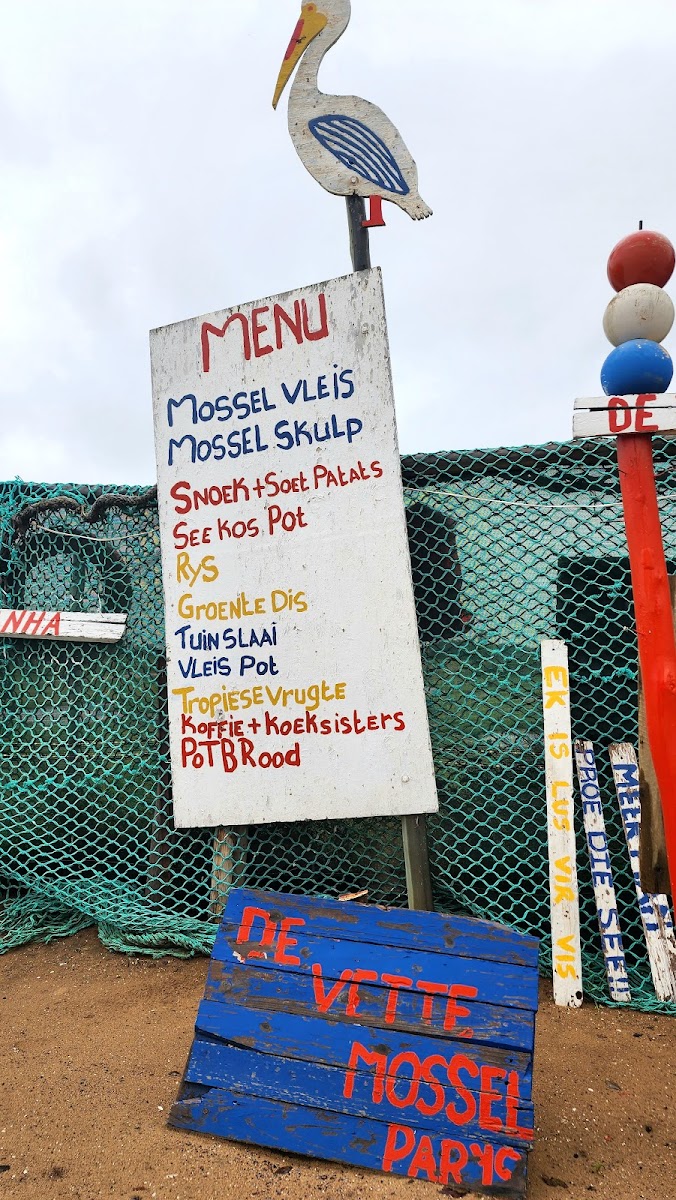 MENU
MOSSEL VLEIS
MOSSEL SKULP
SNOEK + SOET PATATS
SEE KOS POT
RYS
GROENTE DIS
TUINSLAAI
VLEIS POT
TROPIESE VRUGTE
KOFFIE + KOEKSISTERS
POTBROOD
DE
NHA
EK IS LUS VIR VIS
PROE DIE SEE!!
DE
VETTE
MOSSEL
PARYS